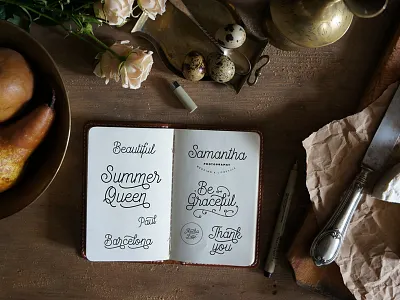 Beautiful
Summer
Queen
Paul
Barcelona
Samantha
Be
Graceful
Thank
you